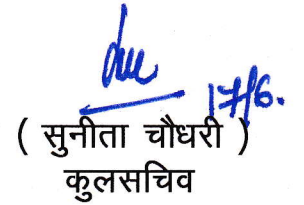 17/6.
( सुनीता चौधरी )
कुलसचिव